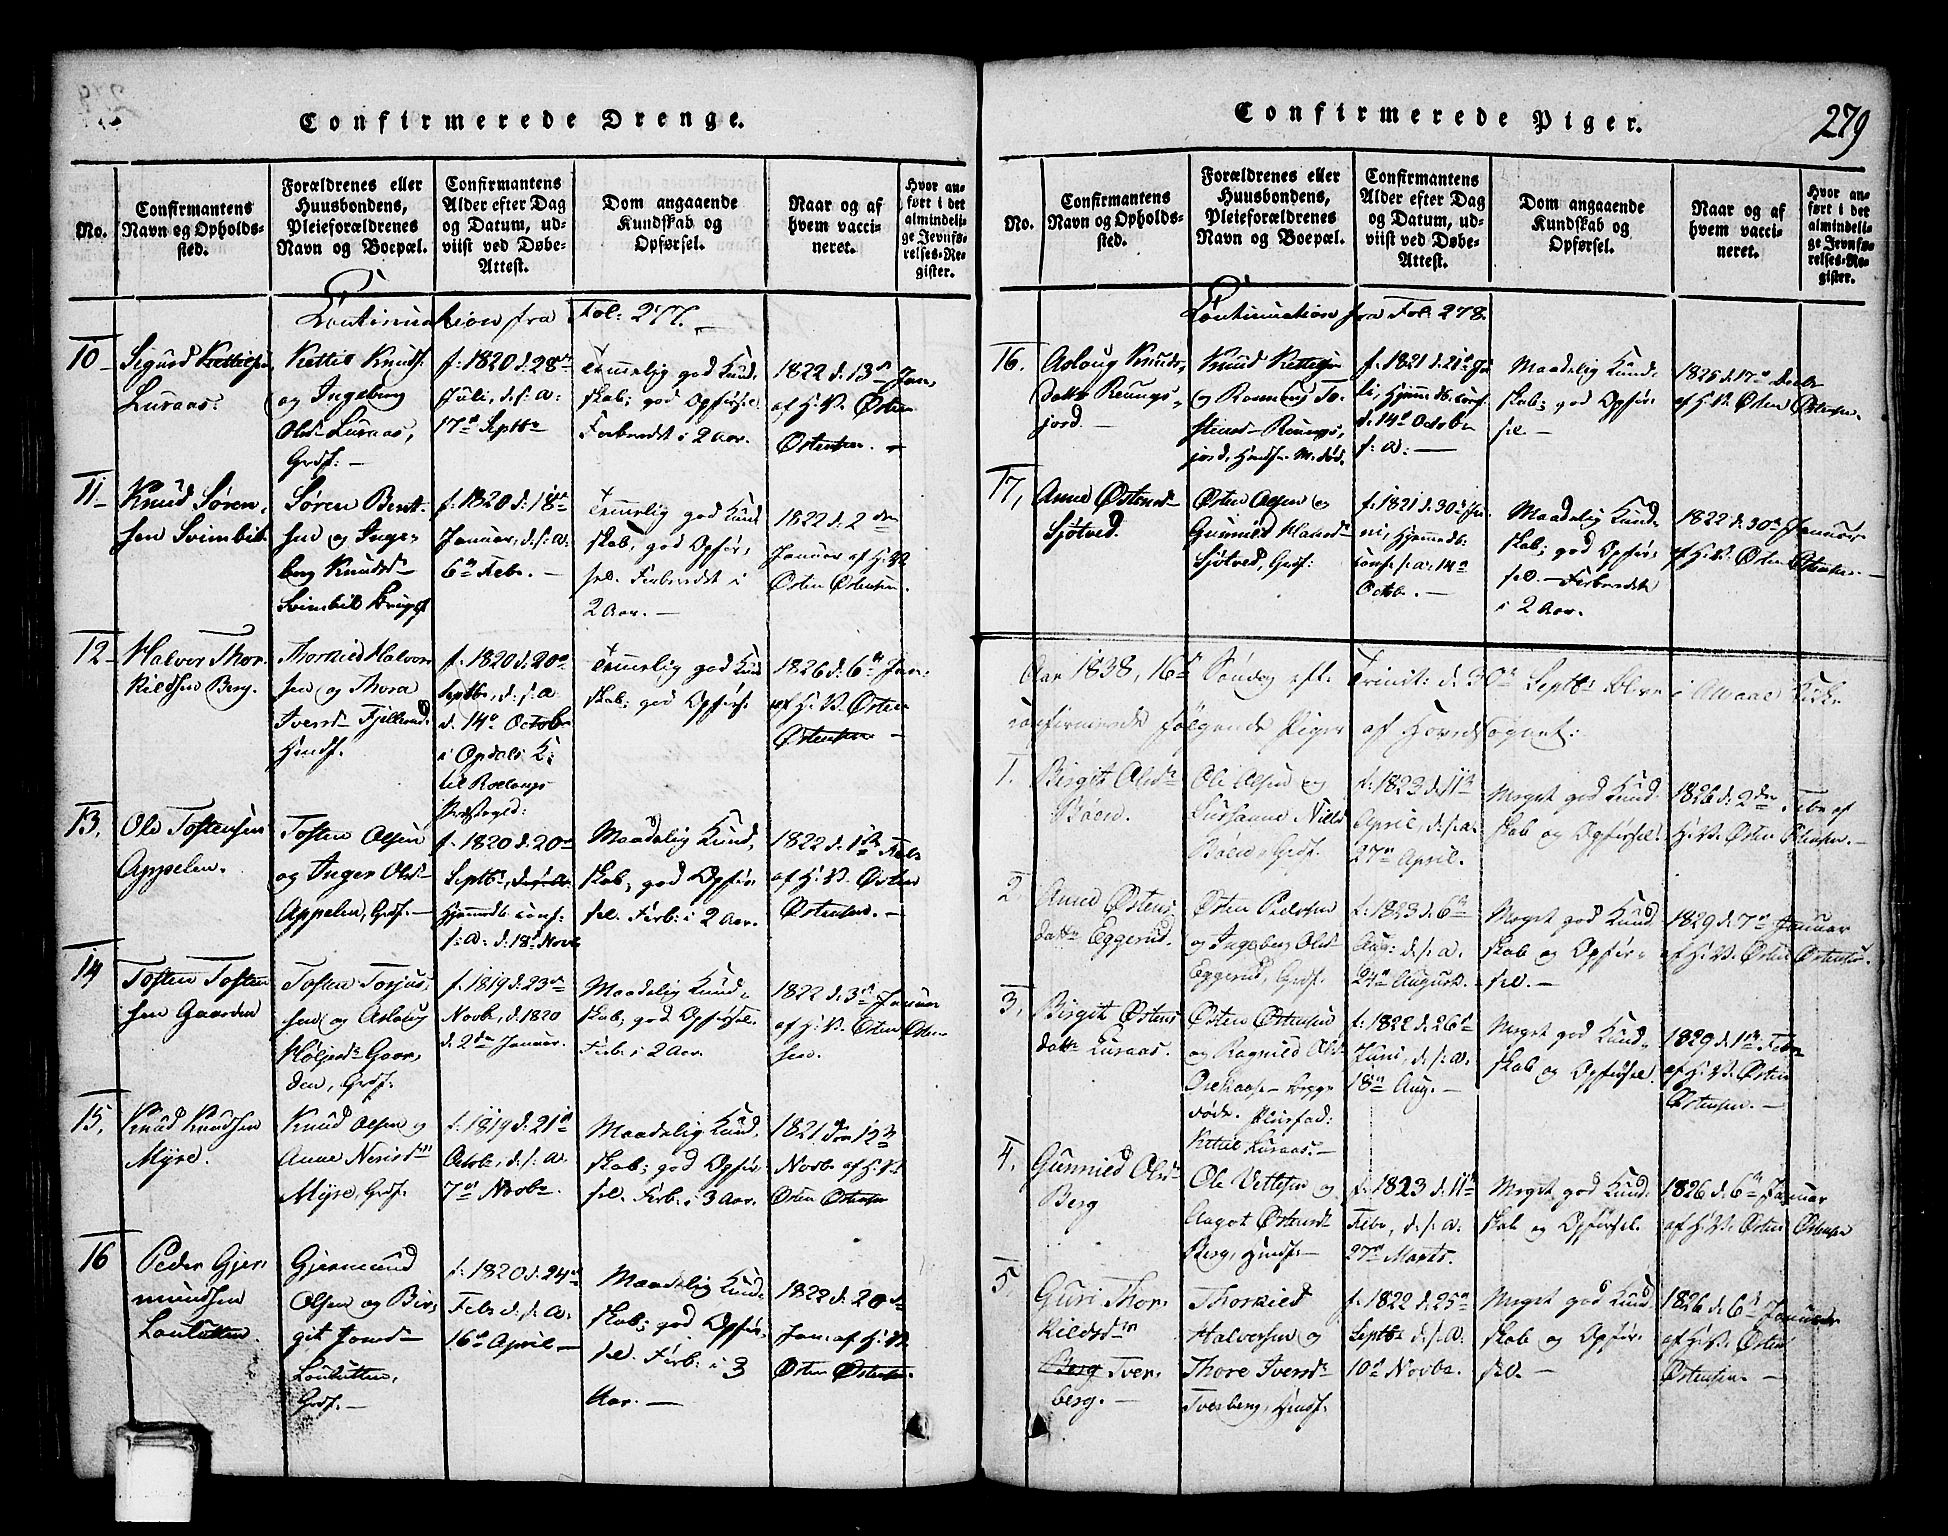 Confirmerede Drenge.
No.
Confirmantens
Navn og Opholds-
sted.
Forældrenes eller
Huusbondens,
Pleieforældrenes
Navn og Boepæl.
Confirmantens
Alder efter Dag
og Datum, ud-
viist ved Døbe-
Attest.
Dom angaaende
Kundskab og
Opførsel.
Naar og af
hvem vacci-
neret.
Hvor an-
ført i det
almindeli-
ge Jevnfø-
relses-Re-
gister.
Continuation fra Fol: 277.
10
Sigurd Kettilsen
Luraas.
Kettil Knuds.
og Ingeborg
Olsd. Luraas,
Grdf. —
f. 1820 d. 28de
Juli, d. s. a.
17de Septbr
Temmelig god Kund-
skab; god Opførsel.
Forberedt i 2 Aar.
1822 d. 13de Jan.
af H. V. Østen
Østensen. —
11
Knud Søren-
sen Svimbil
Søren Bent-
sen og Inge-
borg Knudsd.
Svimbil
f. 1820 d. 18de
Januar, d. s. a.
6te Febr. —
Temmelig god Kund
skab, god Opfør-
sel. Forberedt i
2 Aar. —
1822 d. 2den
Januar af H. V.
Østen Østensen.
12
Halvor Thor-
kildsen Berg.
Thorkild Halvor
sen og Thora
Iversd.
Huusf.
f. 1820 d. 20de
Septbr, d. s. a.
d. 14de October
i Opdals K.
til Rollougs
Præstegjeld:
Temmelig god Kund
skab; god Opførs.
1826 d. 6te Jan.
af H. V. Østen
Østensen —
13.
Ole Tostensen
Appelen.
Tosten Olsen
og Inger Olsd.
Appelen, Grdf. —
f. 1820 d. 20de
Septbr, d. s. a.
Hjemmedb. conf.
s. a. d. 18de Novbr
Maadelig Kund-
skab, god Opfør-
sel. Forb. i 2 Aar.
1822 d. 1ste Febr
af H. V. Østen
Østensen. —
14
Tosten Tosten
sen Gaarden
Tosten Torjus-
sen og Aslaug
Høljesd. Gaar-
den, Grdf.
f. 1819 d. 23de
Novbr, d. 1820
d. 2den Januar.
Maadelig Kund-
skab; god Opførsel.
Forb. i 2 Aar.
1822 d. 3die Januar
af H. V. Østen Østen-
sen.
15.
Knud Knudsen
Myre.
Knud Olsen og
Anne Nerisd.
Myre, Grdf.
f. 1819 d. 21de
Octobr, d. s. a.
7de Novbr.
Maadelig Kund-
skab; god Opfør-
sel. Forb. i 3 Aar.
1821 den 12te
Novbr af H. V.
Østen Østensen
16
Peder Gjer
mundsen
Gjermund
Olsen og Bir-
git
Grdf. —
f. 1820 d. 24de
Febr d. s. a.
16de April —
Maadelig Kund-
skab; god Opfør-
sel. Forb. i 3
Aar. —
1822 d. 20de
Jan. af H. V.
Østen Østensen.
Confirmerede Piger.
279
No.
Confirmantens
Navn og Opholds-
sted.
Forældrenes eller
Huusbondens,
Pleieforældrenes
Navn og Boepæl.
Confirmantens
Alder efter Dag
og Datum, ud-
viist ved Døbe-
Attest.
Dom angaaende
Kundskab og
Opførsel.
Naar og af
hvem vacci-
neret.
Hvor an-
ført i det
almindeli-
ge Jevnfø-
relses-Re-
gister.
Continuation fra Fol: 278.
16.
Asloug Knuds-
datter
jord.
Knud Kettilsen
f. 1821 d. 21de Ju
li, Hjemmedb. conf.
d. 14de October
s. a. —
Maadelig Kund-
skab; god Opfør-
sel. —
1826 d. 17de Decbr
af H. V. Østen Østensen.
17,
Anne Østensd.
Sjøtved.
Østen Olsen og
Gunnild
Sjøtved, Grdf.
f. 1821 d. 30de Ju
ni, Hjemmedb.
conf. s. a. 14de
Octobr. —
Maadelig Kund-
skab; god Opfør-
sel. — Forberedt
i 2 Aar.
1822 d. 30de Januar
af H. V. Østen Østensen. —
Aar 1838, 16de Søndag eft. Trinit: d. 30te Septbr bleve i Kirke
confirmerede følgende Piger af Hovedsognet:
1.
Birgit Olsdr
Bøen.
Ole Olsen og
Susanne Nilsd.
Bøen, Grdf.
f. 1823 d. 11te
April, d. s. a.
27de April.
Meget god Kund-
skab og Opførsel.
1826 d. 2den Febr af
H. V. Østen Østensen. —
2.
Anne Østens-
datter Eggerud.
Østen Pedersen
og Ingebor Olsd.
Eggerud, Grdf.
f. 1823 d. 6te
Aug: d. s. a.
24de August.
Meget god Kund-
skab og Opfør-
sel. —
1829 d. 7de Januar
af H. V. Østen Østensen.
3.
Birgit Østens
datter Luraas.
Østen Østensen
og Ragnild Olsd.
døde. Pleiefad:
Kittil Luraas. —
f. 1822 d. 26de
Juni, d. s. a.
18de Aug. —
Meget god Kund-
skab og Opførsel.
1829 d. 1ste Febr
af H. V. Østen
Østensen. —
4.
Gunnild Olsdr
Berg
Ole Vettesen og
Aagot Østensd.
Berg, Huusf. —
f. 1823 d. 11te
Febr, d. s. a.
27de Marts.
Meget god Kund-
skab og Opførsel.
1826 d. 6te Januar
af H. V. Østen Østensen
5
Guri Thor-
kildsdr
Berg Tver-
berg. —
Thorkild
Halvorsen og
Thore Iversd.
Tverberg, Huusf.
f. 1822 d. 25de
Septbr d. s. a.
10de Novbr.
Meget god Kund-
skab og Opfør-
sel. —
1826 d. 6te Januar
af H. V. Østen
Østensen. —